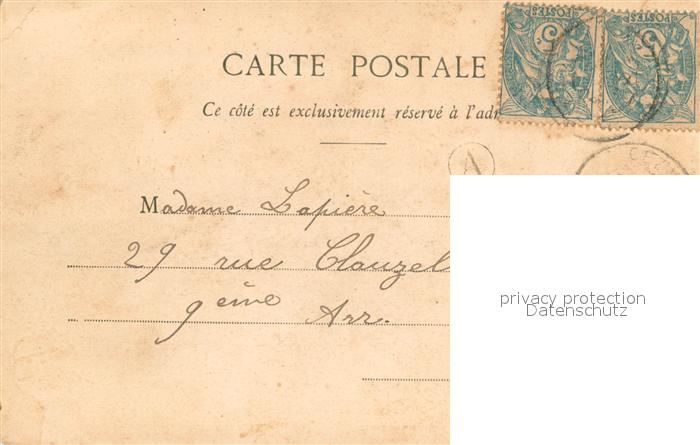 POSTES
POSTES
CARTE POSTALE
Ce côté est exclusivement réservé à l'adr
A
Madame Lapière
29 rue Clauzel
9ème Arr.
privacy protection
Datenschutz